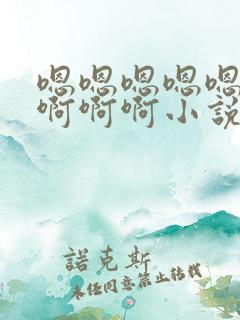 嗯嗯嗯嗯嗯
啊啊啊小説
諾克斯
未经同意禁止转载